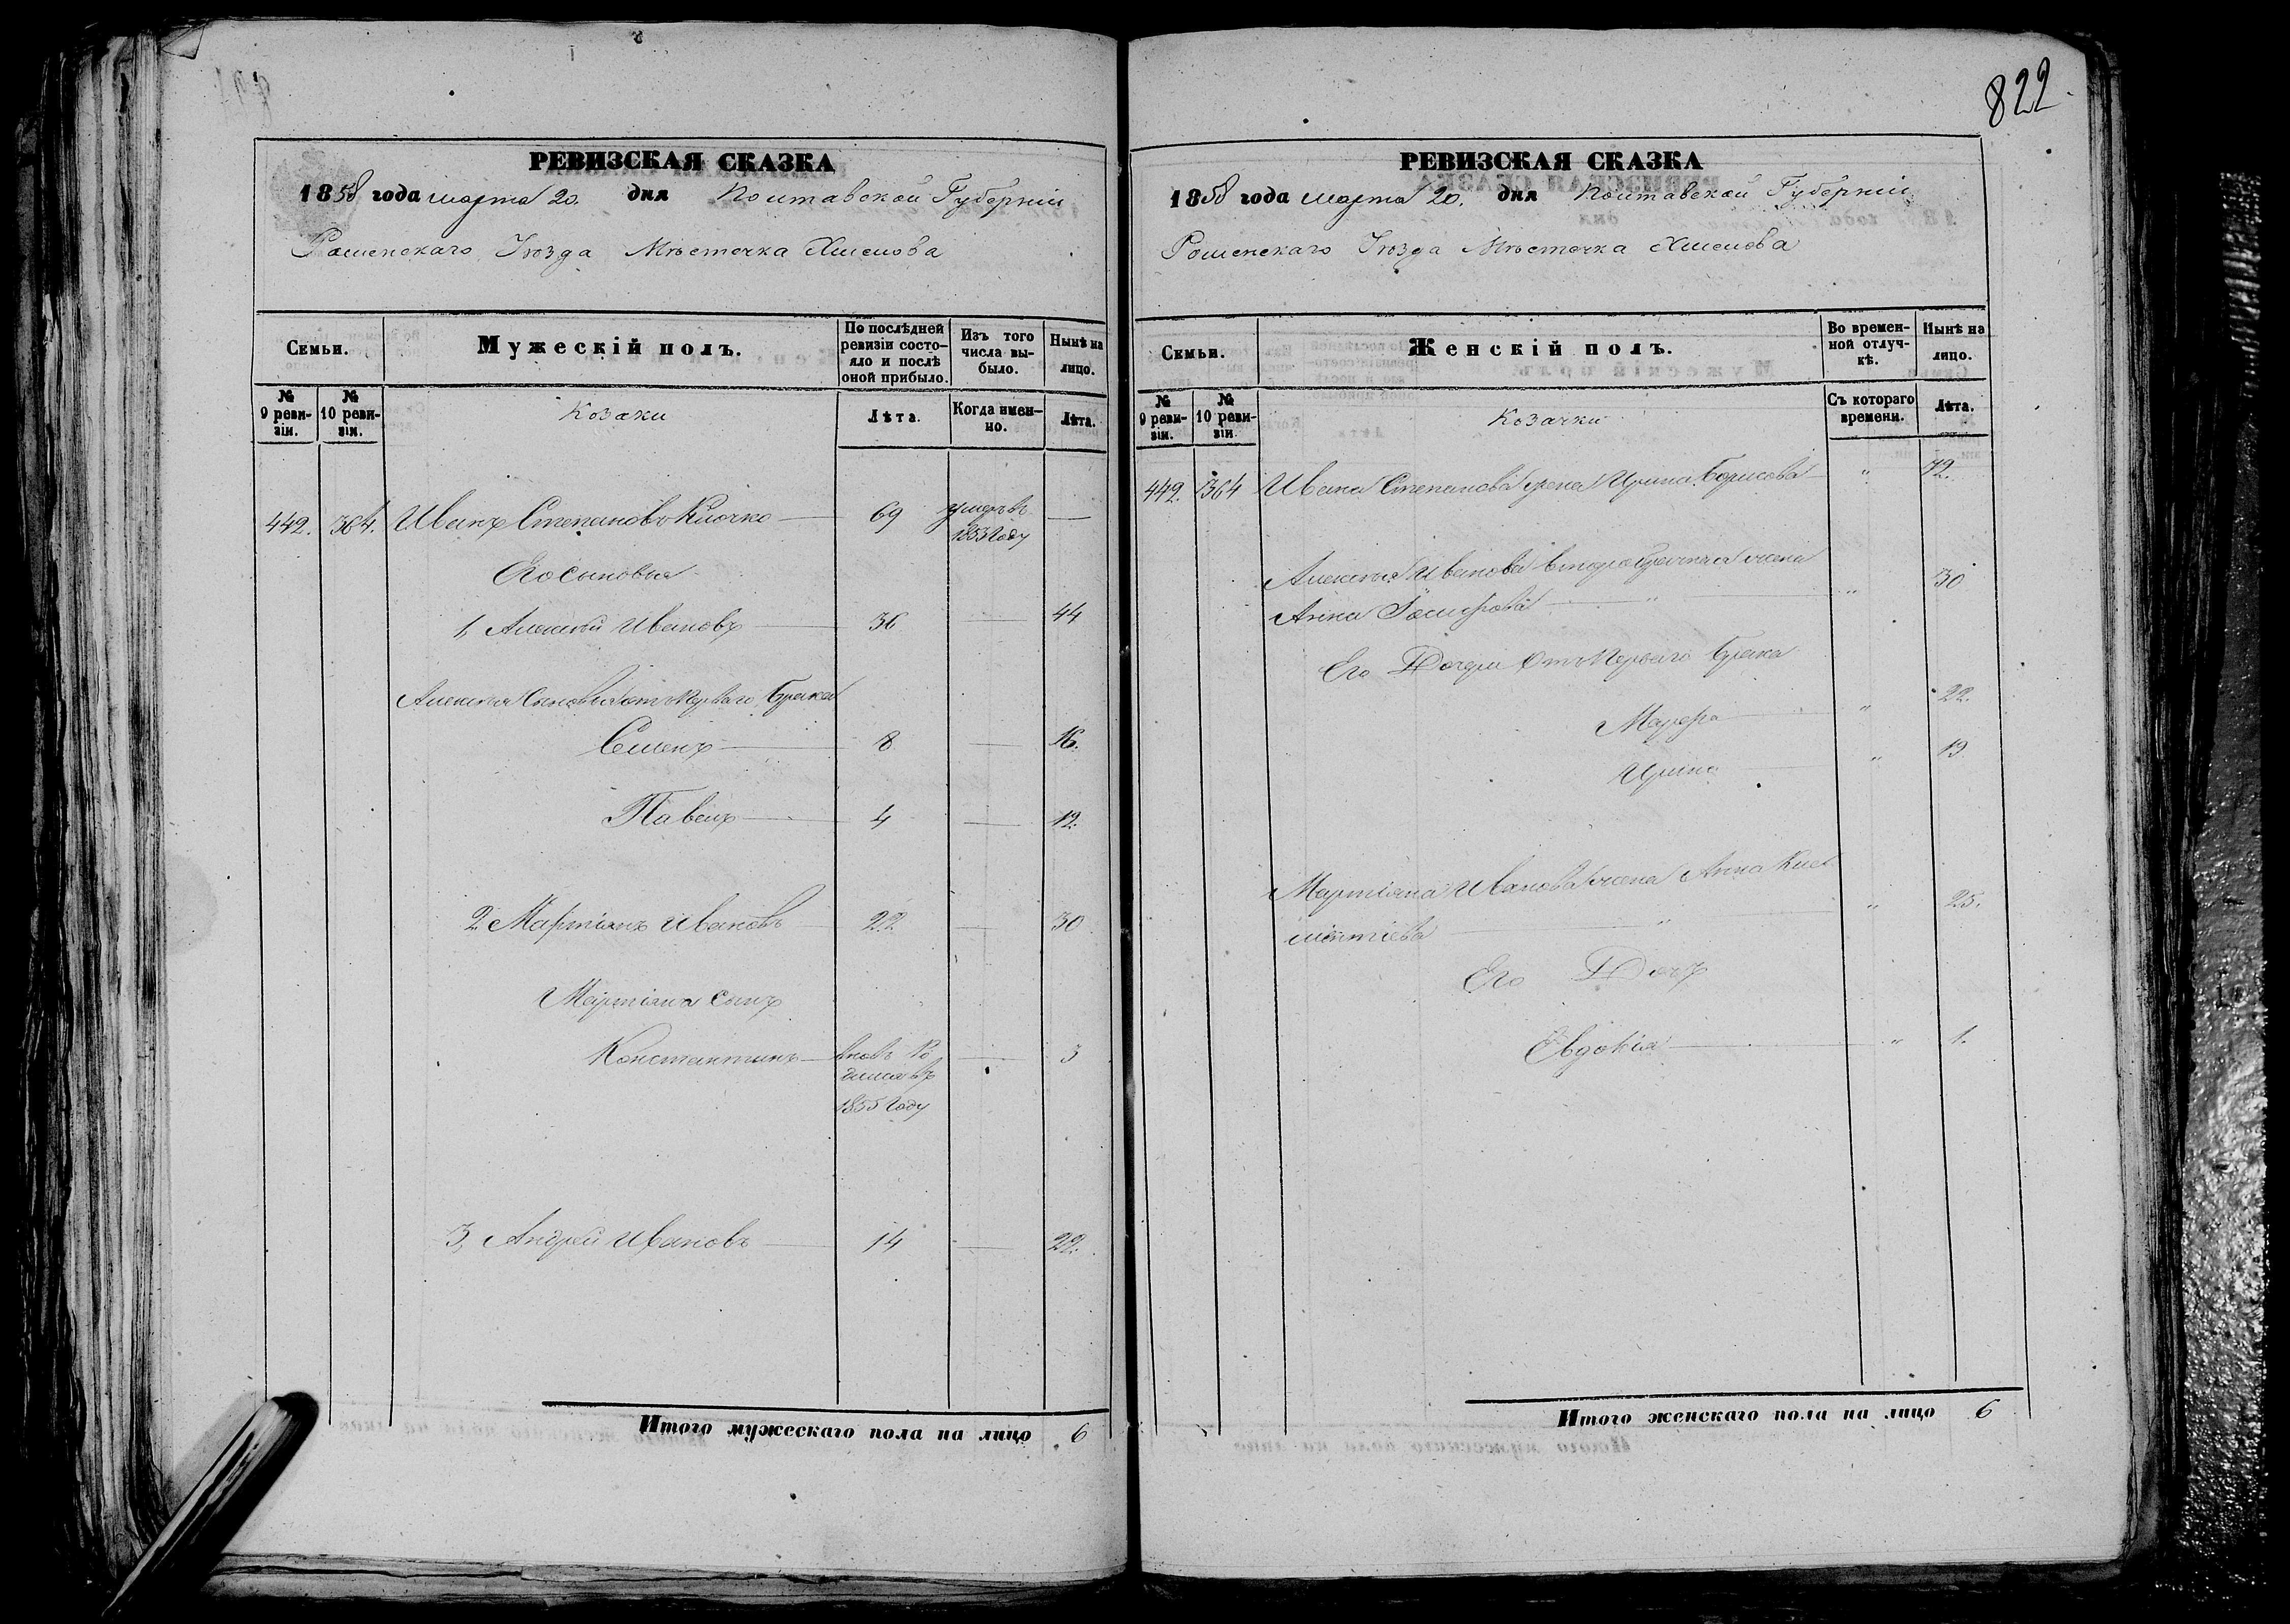 РЕВИЗСКАЯ СКАЗКА
1858 года марта 20. дня Полтавской Губерніи
Роменскаго Уѣзда Мѣстечка Хмелова
Семьи.
Мужескій полъ.
По послѣдней ревизіи состояло и послѣ оной прибыло.
Изъ того числа выбыло.
Нынѣ на лицо.
№ 9 ревизіи.
№ 10 ревизіи.
Козаки
Лѣта.
Когда именно.
Лѣта.
442. 364. Иванъ Степановъ Клочко 69 умеръ въ 1853 Году —
Его сыновья
1, Алексѣй Ивановъ 36 — 44
Алексѣя Сыновья отъ Перваго Брака
Семенъ 8 — 16.
Павелъ 4 — 12.
2. Мартіянъ Ивановъ 22 — 30
Мартіяна сынъ
Константинъ вновь Ро — 3
дился въ
1855 Году
3, Андрей Ивановъ 14 — 22.
Итого мужескаго пола на лицо 6
822
РЕВИЗСКАЯ СКАЗКА
1858 года марта 20. дня Полтавской Губерніи
Роменскаго Уѣзда Мѣстечка Хмелова
Семьи.
Женскій полъ.
Во временной отлучкѣ.
Нынѣ на лицо.
№ 9 ревизіи.
№ 10 ревизіи.
Козачки
Съ котораго времени.
Лѣта.
442. 364 Ивана Степанова жена Ирина Борисова " 72.
Алексѣя Иванова второбрачная жена
Анна " " 30
Его Дочери Отъ Перваго Брака
Марфа " 22.
Ирина " 19
Мартіяна Иванова жена Анна Кле
ментіева " " 25.
Его Дочь
Евдокія " 1.
Итого женскаго пола на лицо 6